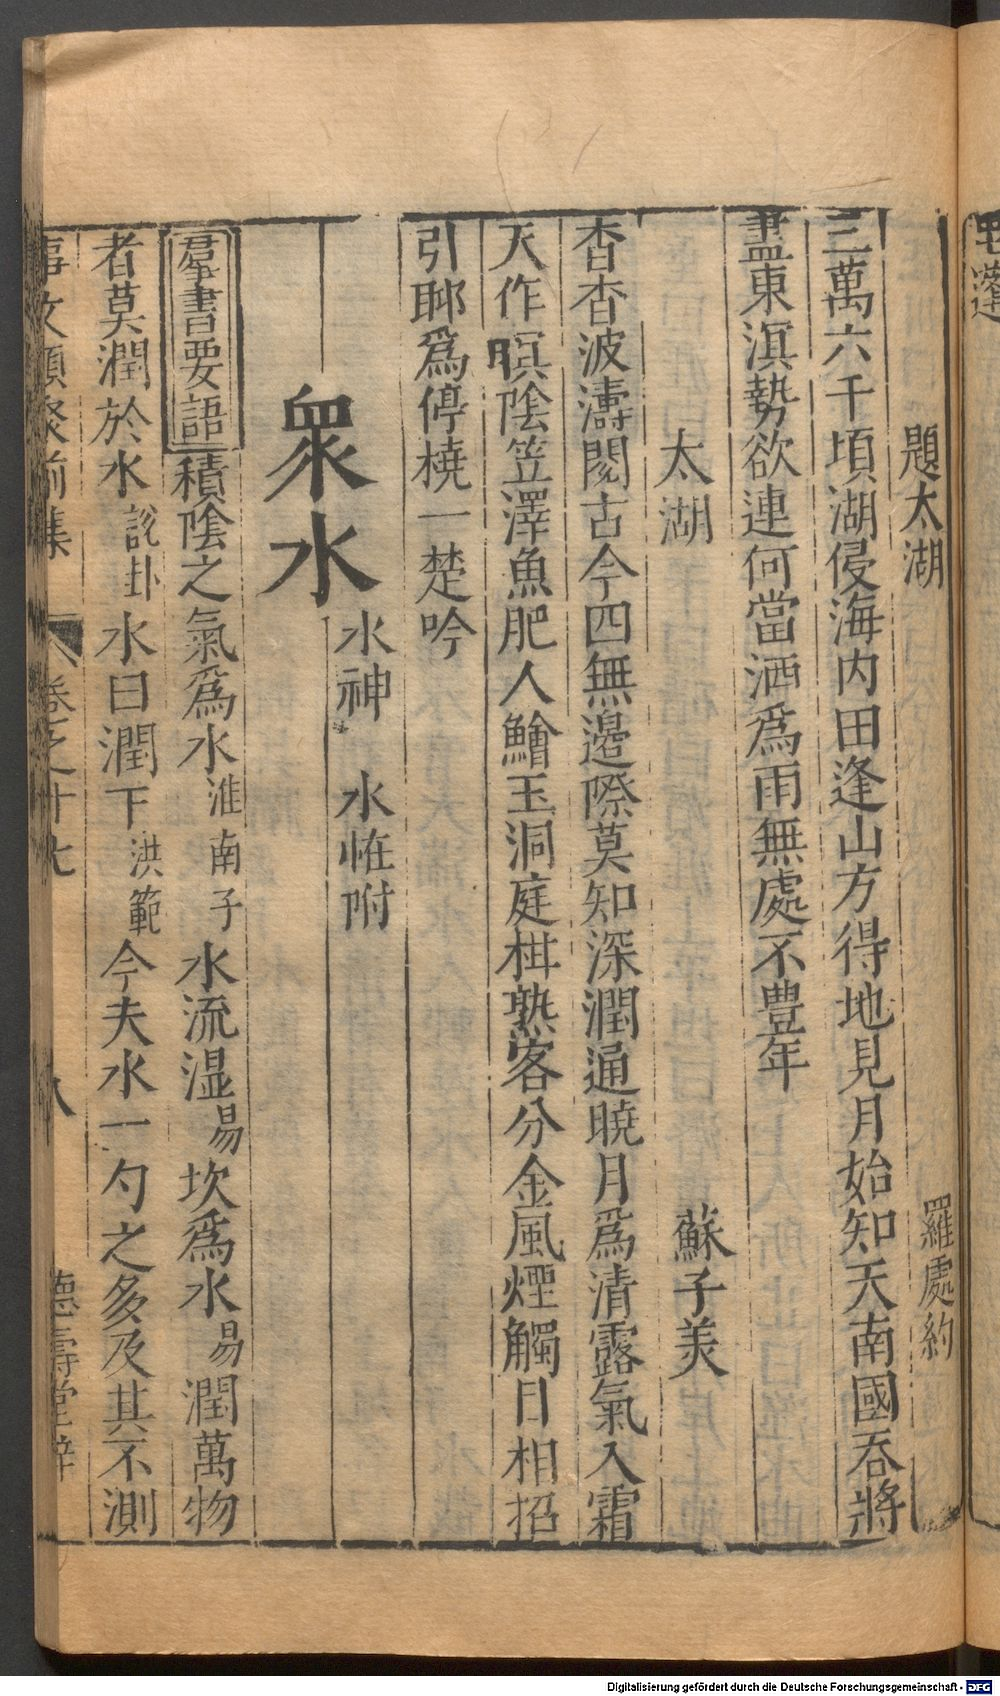 題太湖 羅處約
三萬六千頃湖侵海内田逢山方得地見月始知天南國吞將
盡東溟勢欲連何當洒爲雨無處不豊年
太湖 蘇子美
杳杳波濤閱古今四無邊際莫知深潤通曉月爲清露氣入霜
天作暝陰笠澤魚肥人鱠玉洞庭柑熟客分金風煙觸目相招
引聊爲停橈一楚吟
衆水
水神 水恠附
羣書要語 積陰之氣爲水 淮南子 水流湿 易 坎爲水 易 潤萬物
者莫潤於水 説卦 水曰潤下 洪範 今夫水一勺之多及其不測
事文類聚前集 卷之十七 八 德壽堂梓
Digitalisierung gefördert durch die Deutsche Forschungsgemeinschaft - DFG